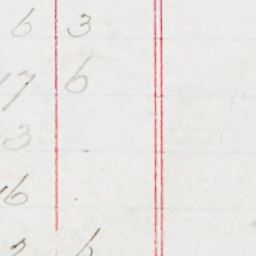 6 3
17 6
3
16
2 6